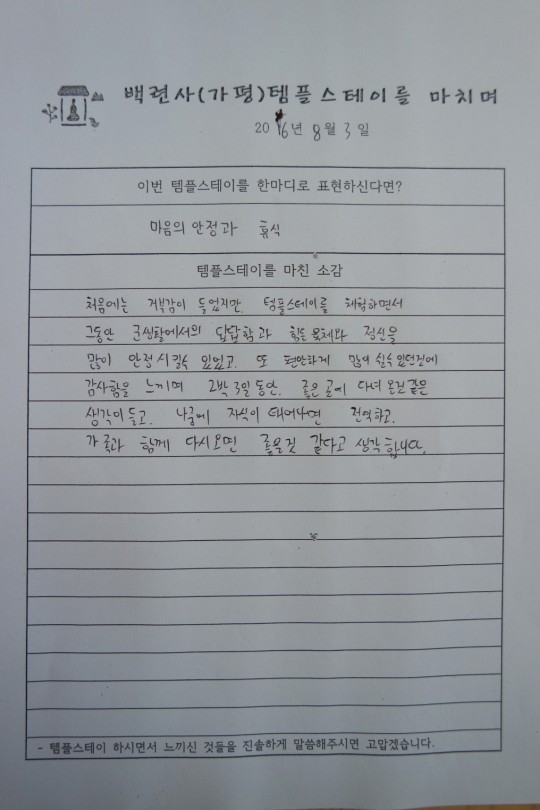 백련사(가평)템플스테이를 마치며
2016년 8월 3일
이번 템플스테이를 한마디로 표현하신다면?
마음의 안정과 휴식
템플스테이를 마친 소감
처음에는 거북감이 들었지만. 템플스테이를 체험하면서
그동안 군생활에서의 답답함과 힘든 육체와 정신을
많이 안정시킬수 있었고. 또 편안하게 많이 쉴수 있던것에
감사함을 느끼며 2박 3일동안. 좋은 곳에 다녀 온것 같은
생각이 들고. 나중에 자식이 태어나면 전역하고.
가족과 함께 다시오면 좋을것 같다고 생각합니다.
- 템플스테이 하시면서 느끼신 것들을 진솔하게 말씀해주시면 고맙겠습니다.